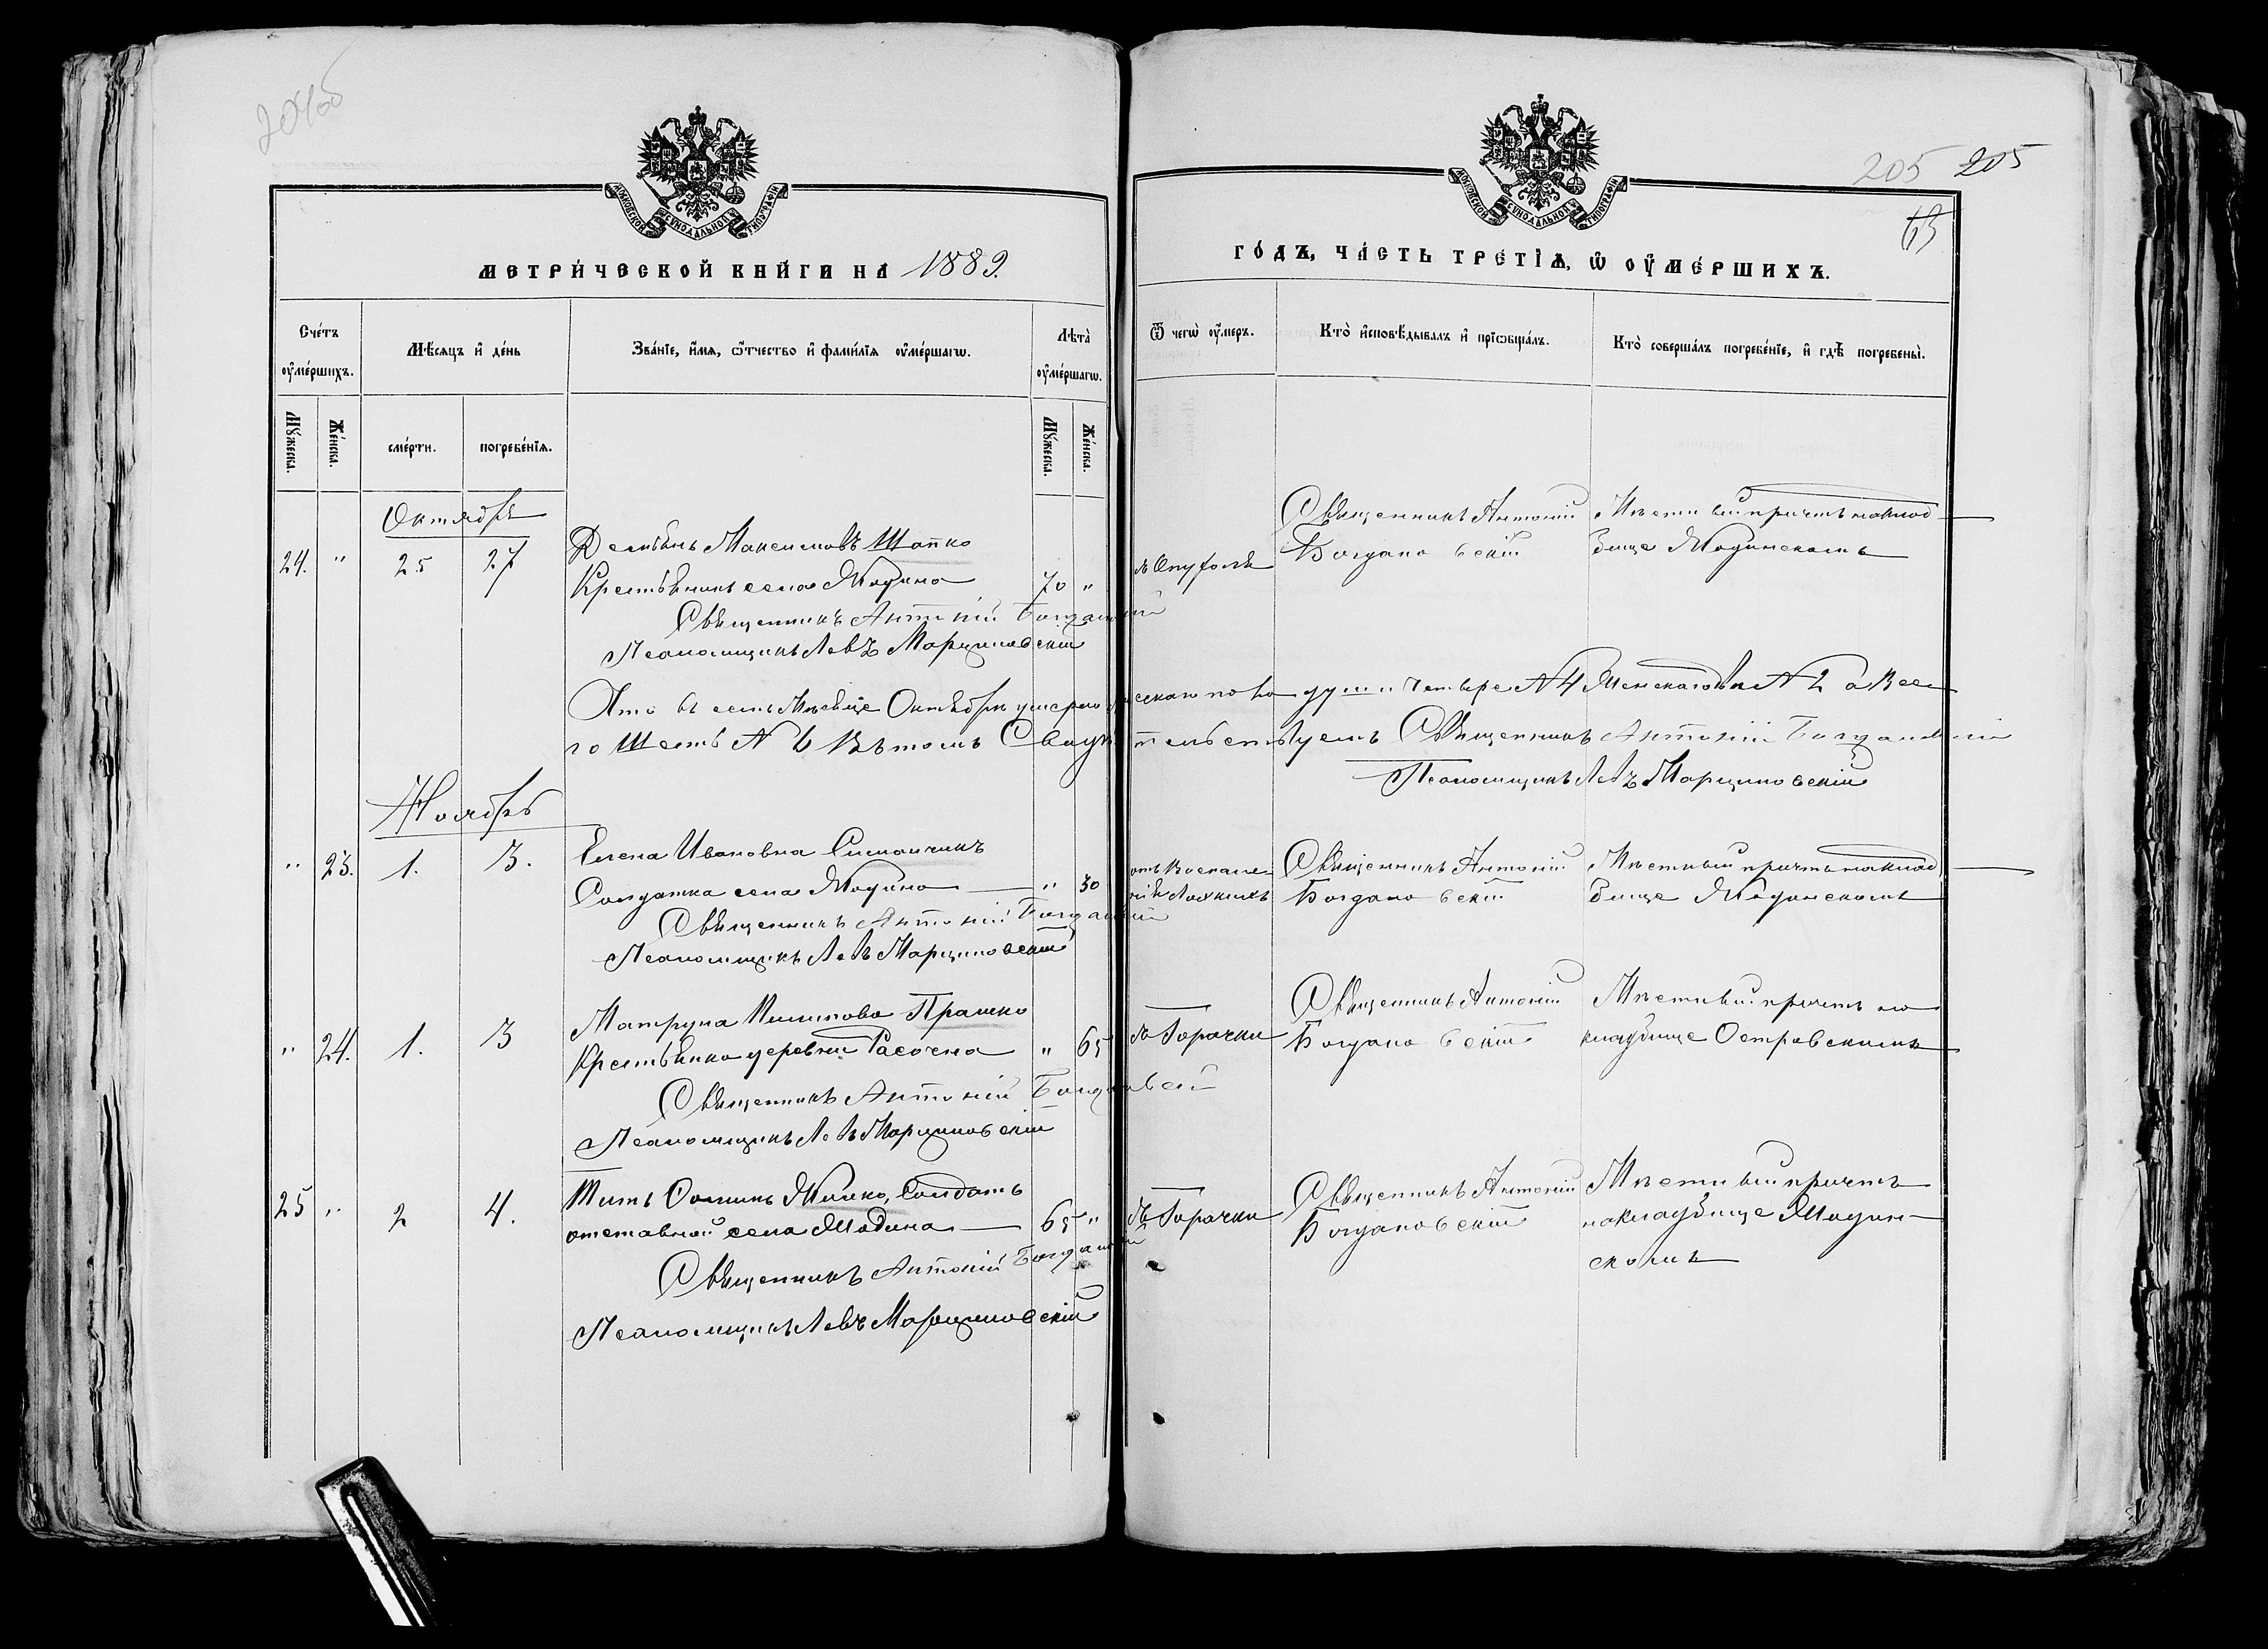 205 205
65
МОСКОВСКОЙ СѴНОДАЛЬНОЙ ТИПОГРАФІИ
МОСКОВСКОЙ СѴНОДАЛЬНОЙ ТИПОГРАФІИ
МЕТРИ́ЧЕСКОЙ КНИ́ГИ НА 1889.
ГО́ДЪ, ЧА́СТЬ ТРЕ́ТІѦ, Ѡ ОУ҆МЕ́РШИХЪ.
Сче́тъ оу҆ме́ршихъ.
Мѣ́сяцъ и҆ де́нь
Зва́нїе, и҆́мѧ, ѻ҆́тчество и҆ фами́лїѧ оу҆ме́ршагѡ.
Лѣта̀ оу҆ме́ршагѡ.
Ѿ чегѡ̀ оу҆́меръ.
Кто̀ и҆сповѣ́дывалъ и҆ прїѡбща́лъ.
Кто̀ соверша́лъ погребе́нїе, и҆ гдѣ̀ погребены̀.
Мꙋ́жеска.
Же́нска.
сме́рти.
погребе́нїѧ.
Мꙋ́жеска.
Же́нска.
Октябрь
24. " 25 27
Демьянъ Максимовъ Шапко
Крестьянинъ села Модина 70 "
Священникъ Антоній Богдановскій
Псаломщикъ Левъ Марциновскій
Опухоли
Священникъ Антоній
Богдановскій
Мѣстный причтъ на клад-
бище Модинскомъ
Что въ семъ Мѣсяце Октябрѣ умерло мужескаго пола души четыре № 4 Женскаго двѣ № 2 а Все-
го Шесть № 6 Въ томъ Свидѣтельствуемъ Священникъ Антоній Богдановскій
Псаломщикъ Левъ Марциновскій
Ноябрь
" 23. 1. 3.
Елена Ивановна Симончикъ
Солдатка села Модина " 30
Священникъ Антоній Богдановскій
Псаломщикъ Левъ Марциновскій
отъ Воспале-
нія Легкихъ
Священникъ Антоній
Богдановскій
Мѣстный причтъ на клад-
бище Модинскомъ
" 24. 1. 3
Матруна Филипова Прашко
Крестьянка деревни " 65
Священникъ Антоній Богдановскій
Псаломщикъ Левъ Марциновскій
Горячки
Священникъ Антоній
Богдановскій
Мѣстный причтъ на
кладбище Островскомъ
25 " 2 4.
Титъ Солдатъ
отставной села Модина 65 "
Священникъ Антоній Богдановскій
Псаломщикъ Левъ Марциновскій
Горячки
Священникъ Антоній
Богдановскій
Мѣстный причтъ
на кладбище Модин-
скомъ